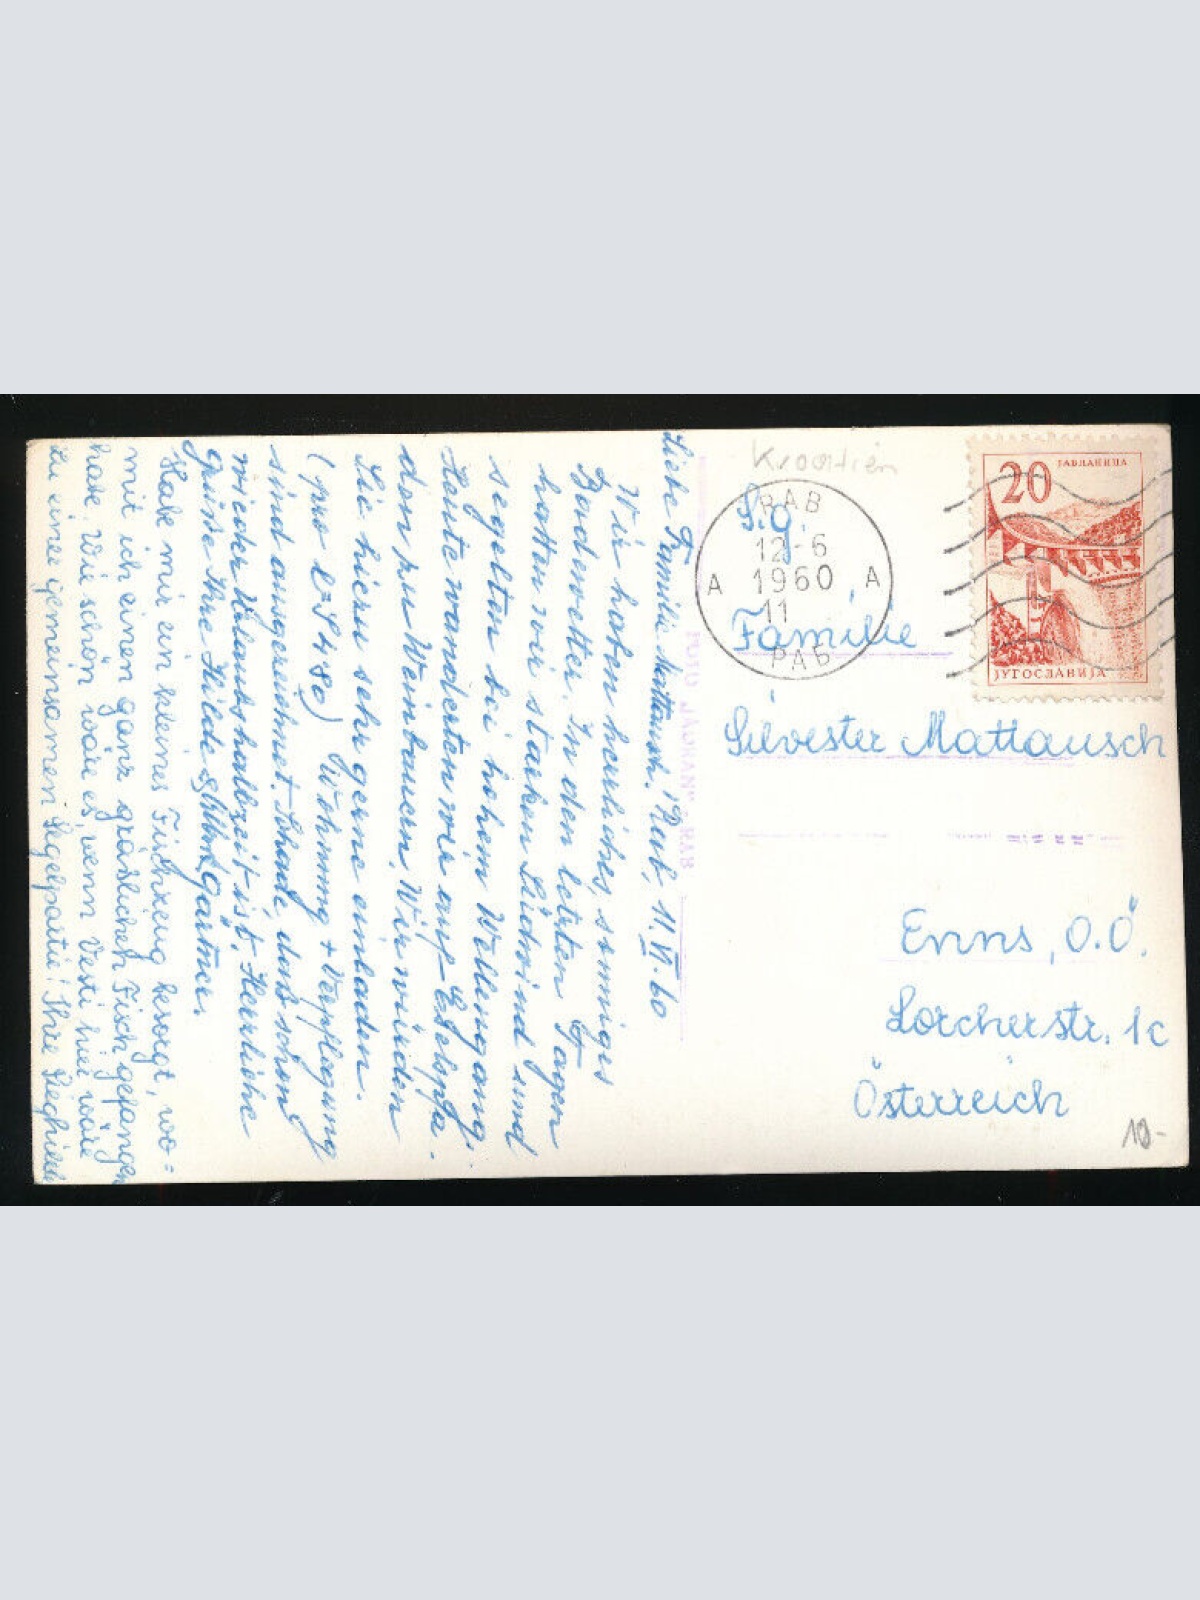 Liebe Familie Mattausch! Rab, 11.VI.60
Wir haben herrliches, sonniges
Badewetter. In den letzten Tagen
hatten wir starken Südwind und
segelten bei hohem Wellengang.
Heute wanderten wir auf
den zu Weinbauern. Wir würden
Sie hierzu sehr gerne einladen.
(pro l S 4.80) Wohnung + Verpflegung
sind ausgezeichnet. Schade, dass schon
wieder Urlaubshalbzeit ist. Herzliche
Grüße Ihre Hilde Gärtner.
Habe mir ein kleines Fischzeug besorgt, wo=
mit ich einen ganz grässlichen Fisch gefangen
habe. Wie schön wäre es, wenn Vesti hier wäre
zu einer gemeinsamen Segelpartie! Ihre Sieghilde
Kroatien
RAB
12-6
1960
11
A A
РАБ
S.g.
Familie
Silvester Mattausch
Enns, O.Ö.
Lorcherstr. 1c
Österreich
FOTO "JADRAN" RAB
20
ЈАБЛАНИЦА
ЈУГОСЛАВИЈА
10-